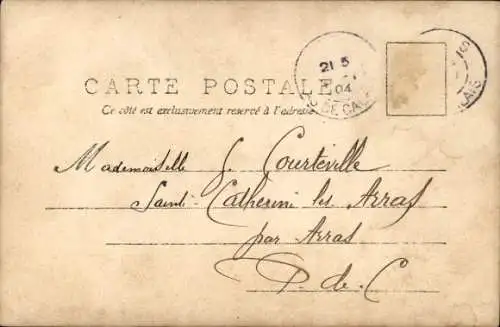 21 5
04
CARTE POSTALE
Ce côté est exclusivement réservé à l'adresse
Mademoiselle S. Courteville
Saint-Catherine les Arras
par Arras
P. de. C